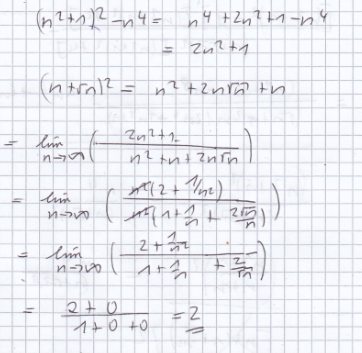 (n²+1)² - n⁴ = n⁴ + 2n² + 1 - n⁴
= 2n² + 1
(n+√n)² = n² + 2n√n + n
= lim n→∞ ( (2n²+1) / (n²+n+2n√n) )
= lim n→∞ ( n²(2 + 1/n²) / n²(1 + 1/n + 2√n/n) )
= lim n→∞ ( (2 + 1/n²) / (1 + 1/n + 2/√n) )
= (2+0) / (1+0+0) = 2